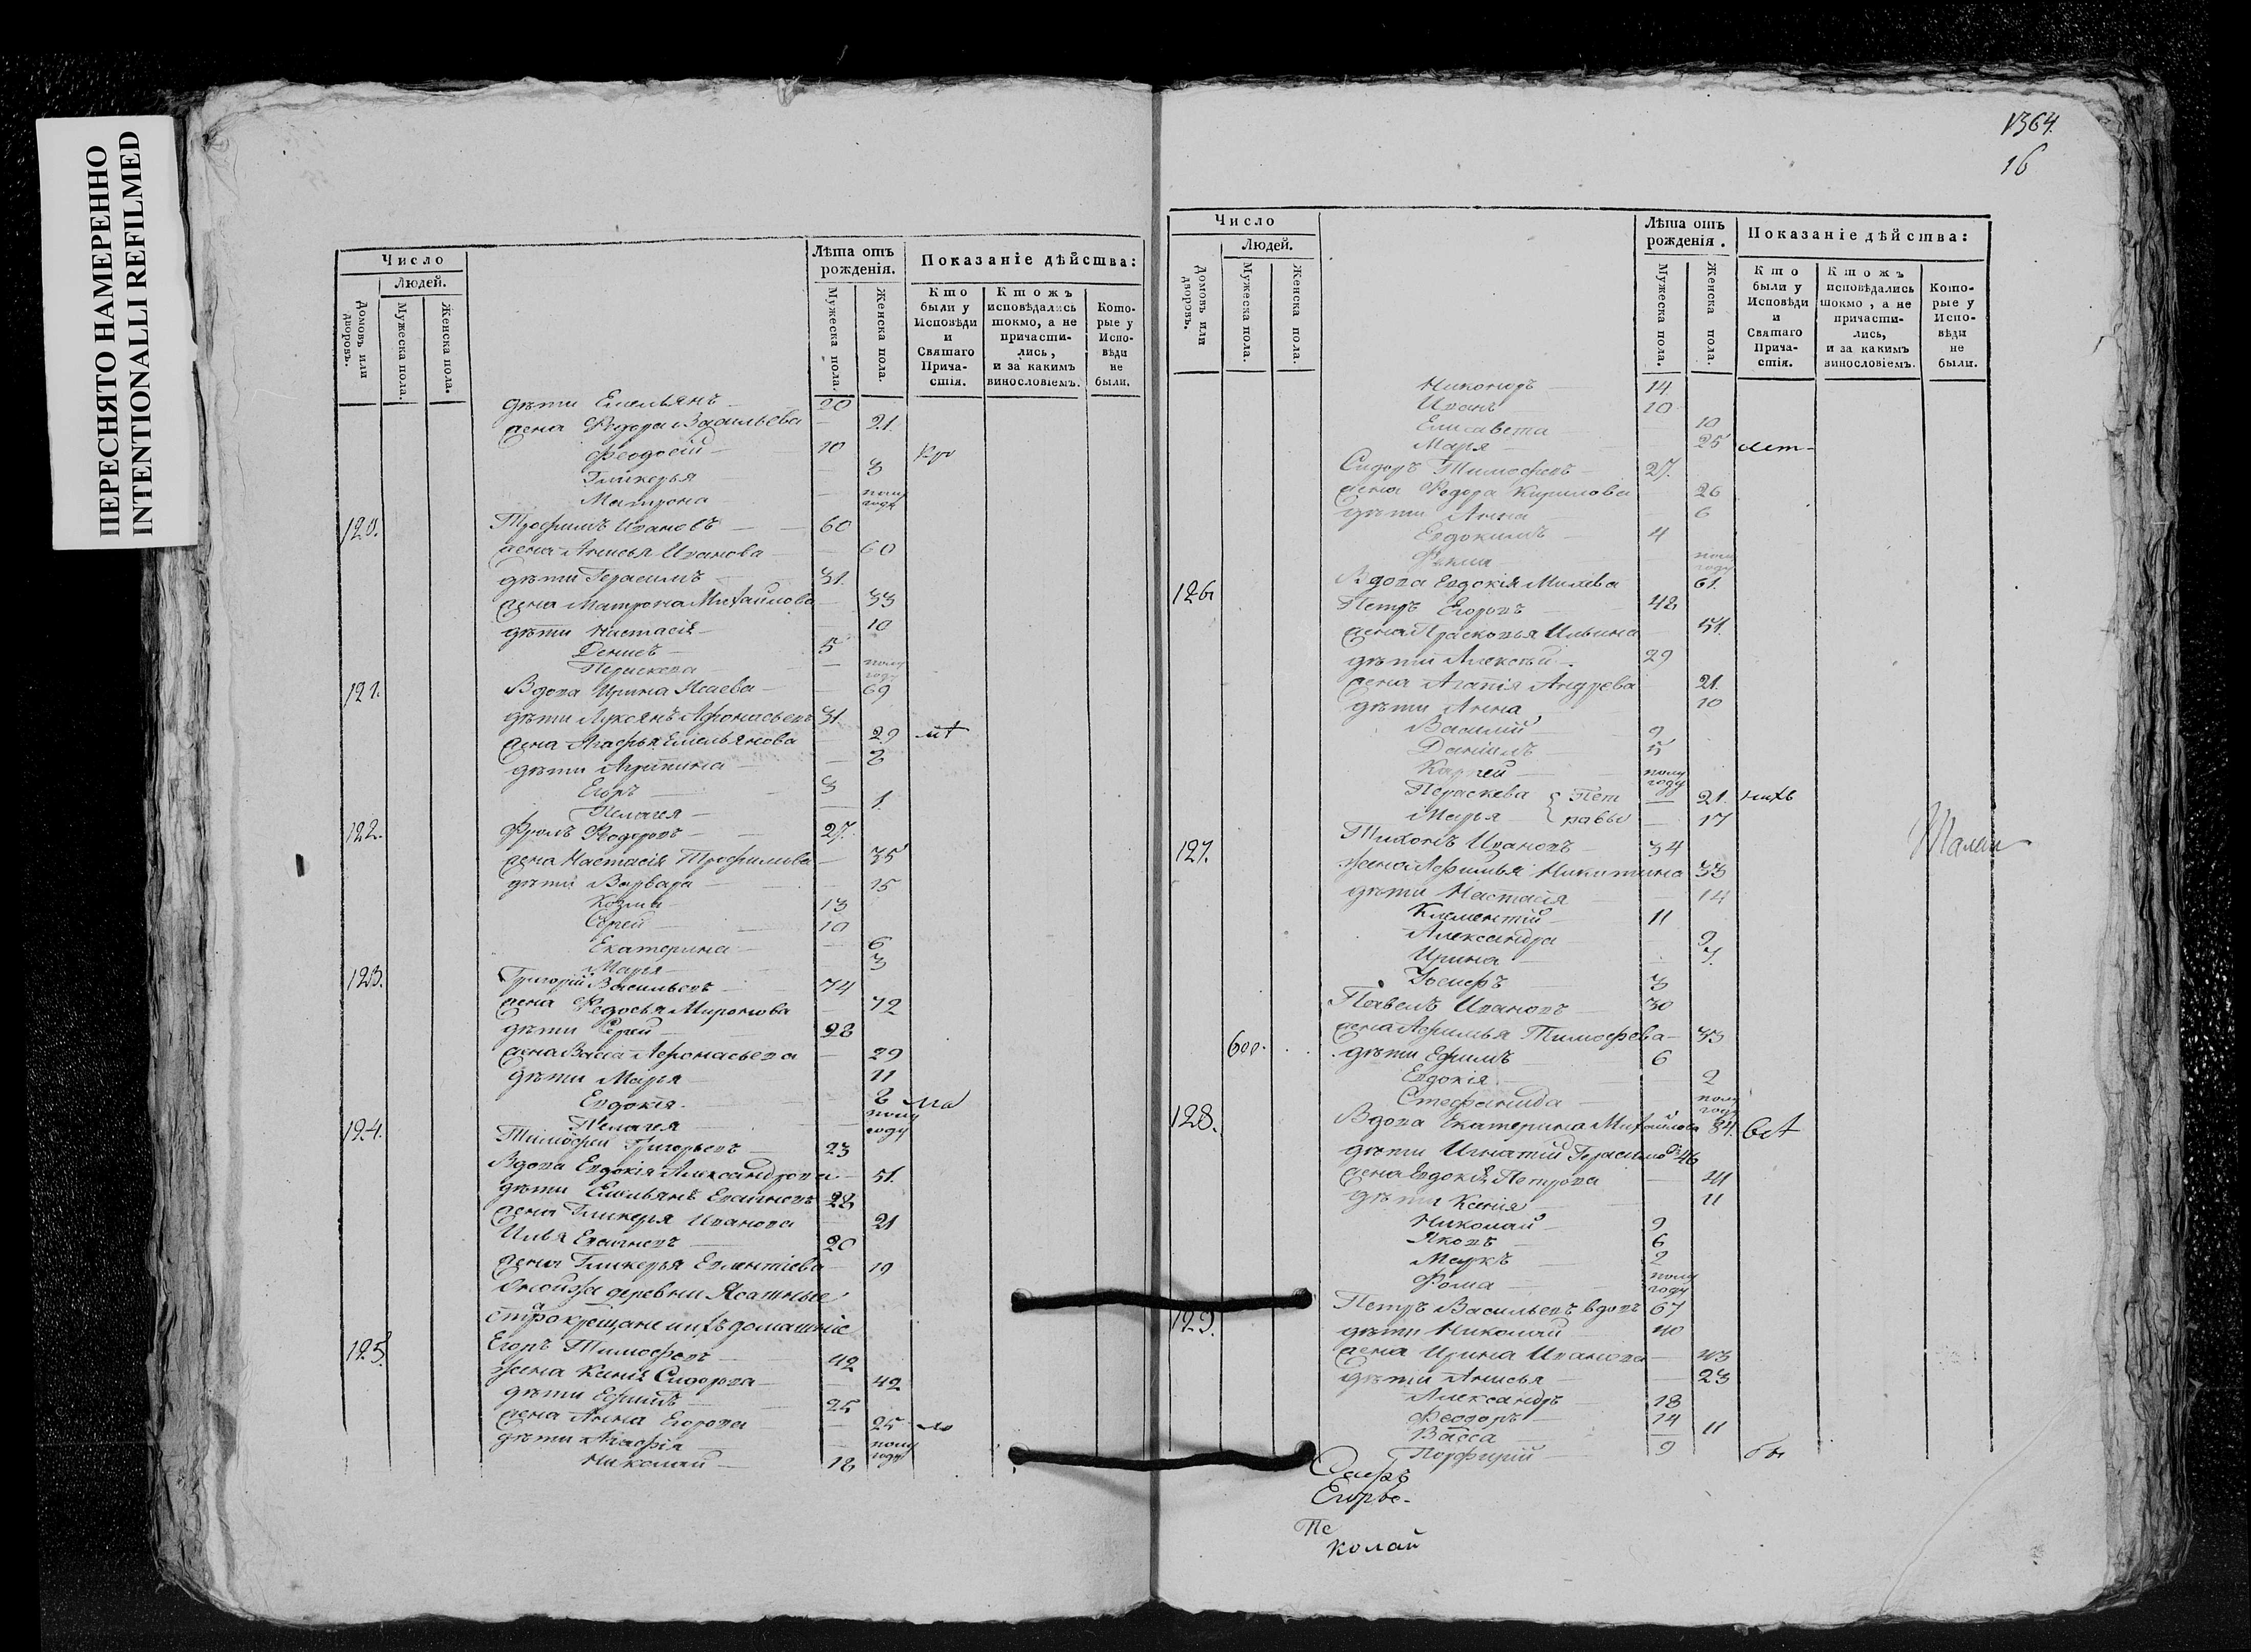 ПЕРЕСНЯТО НАМЕРЕННО
INTENTIONALLI REFILMED
Число
Людей.
Домовъ или дворовъ.
Мужеска пола.
Женска пола.
Лѣта отъ рожденія.
Мужеска пола.
Женска пола.
Показаніе дѣйства:
Кто были у Исповѣди и Святаго Причастія.
Ктожъ исповѣдались токмо, а не причастились, и за какимъ винословіемъ.
Которые у Исповѣди не были.
дѣти Емельянъ 20
жена Федора Васильева 21
Феодосій 10
Гликерья 3
Матрона полу году
120. Трофимъ Ивановъ 60
жена Анисья Иванова 60
дѣти Герасимъ 31
жена Матрона Михайлова 33
дѣти Настасія 10
Денисъ 5
Параскева полу году
121. Вдова Ирина Исаева 69
дѣти Лукіянъ Афонасьевъ 31
жена Агафья Емельянова 29
дѣти Агрипина
Егоръ 3
Пелагея 1
122. Фролъ Федоровъ 27
жена Настасія Трофимова 35
дѣти Варвара 15
Козма 13
Сергей 10
Екатерина 6
Марья 3
123. Григорій Васильевъ 74
жена Федосья Миронова 72
дѣти Сергей 28
жена Васса Афонасьева 29
дѣти Марья 11
Евдокія
Пелагея полу году
124. Тимофей Григорьевъ 23
Вдова Евдокія Александрова 51
дѣти Емельянъ 28
жена Гликерья Иванова 21
Илья 20
жена Гликерья 19
Оной же деревни Ясашные
старокрещане и ихъ домашніе
125. Егоръ Тимофеевъ 42
жена Сидорова 42
дѣти Ефимъ 25
жена Анна Егорова 25
дѣти Агафія полу году
Николай 18
1364.
16
Число
Людей.
Домовъ или дворовъ.
Мужеска пола.
Женска пола.
Лѣта отъ рожденія.
Мужеска пола.
Женска пола.
Показаніе дѣйства:
Кто были у Исповѣди и Святаго Причастія.
Ктожъ исповѣдались токмо, а не причастились, и за какимъ винословіемъ.
Которые у Исповѣди не были.
Никоноръ 14
Иванъ 10
Елисавета 10
Марья 25
Сидоръ Тимофеевъ 27
жена Федора Кирилова 26
дѣти Анна 6
Евдокимъ 4
Фекла полу году
126. Вдова Евдокія 61
Петръ Егоровъ 48
жена Прасковья Ильина 51
дѣти Алексѣй 29
жена Агапія Андрева 21
дѣти Анна 10
Василій 9
Даниилъ 5
полу году
Параскева Пет 21
Марья ровы 17
127. Тихонъ Ивановъ 34
жена Афимья Никитина 33
дѣти Настасія 14
Климентій 11
Александра 9
Ирина 7
Іосифъ 3
Павелъ Ивановъ 30
жена Афимья Тимофева 33
дѣти Ефимъ 6
Евдокія 2
Стефанида полу году
128. Вдова Екатерина Михайлова 84
дѣти Игнатій Герасимовъ 46
жена Евдокія Петрова 41
дѣти Ксенія 11
Николай 9
Яковъ 6
Маркъ 2
Фома полу году
129. Петръ Васильевъ вдовъ 67
дѣти Николай 40
жена Ирина Иванова 43
дѣти Анисья 23
Александръ 18
Феодоръ 14
Васса 11
Порфирій 9
колай